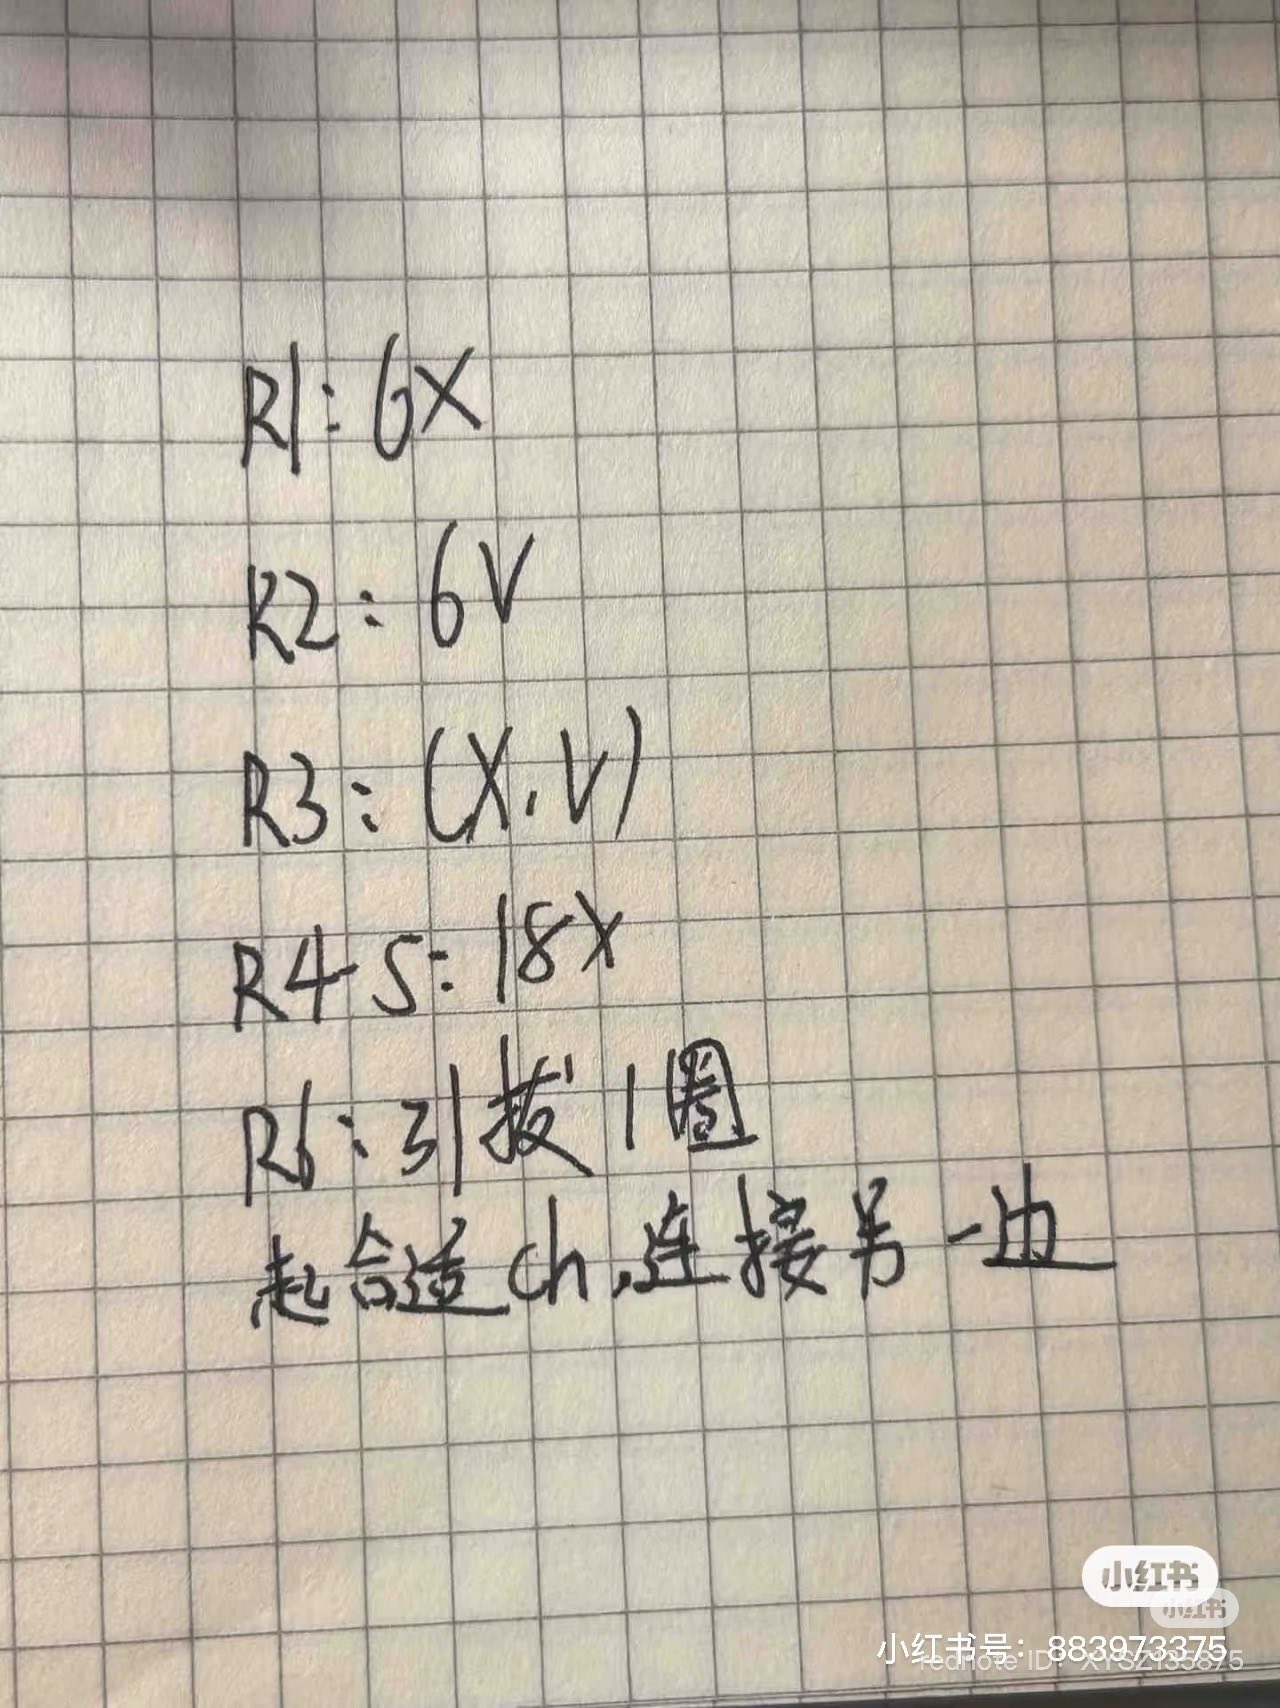 R1: 6X
R2: 6V
R3: (X, V)
R4-5: 18X
R6: 引拔1圈
起合适ch,连接另一边
小红书
小红书
小红书号: 883973375
rednote ID: XYSZ135875